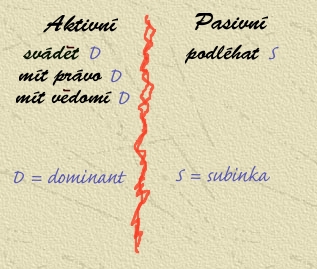 Aktivní
svádět D
mít právo D
mít vědomí D
D = dominant
Pasivní
podléhat S
S = subinka